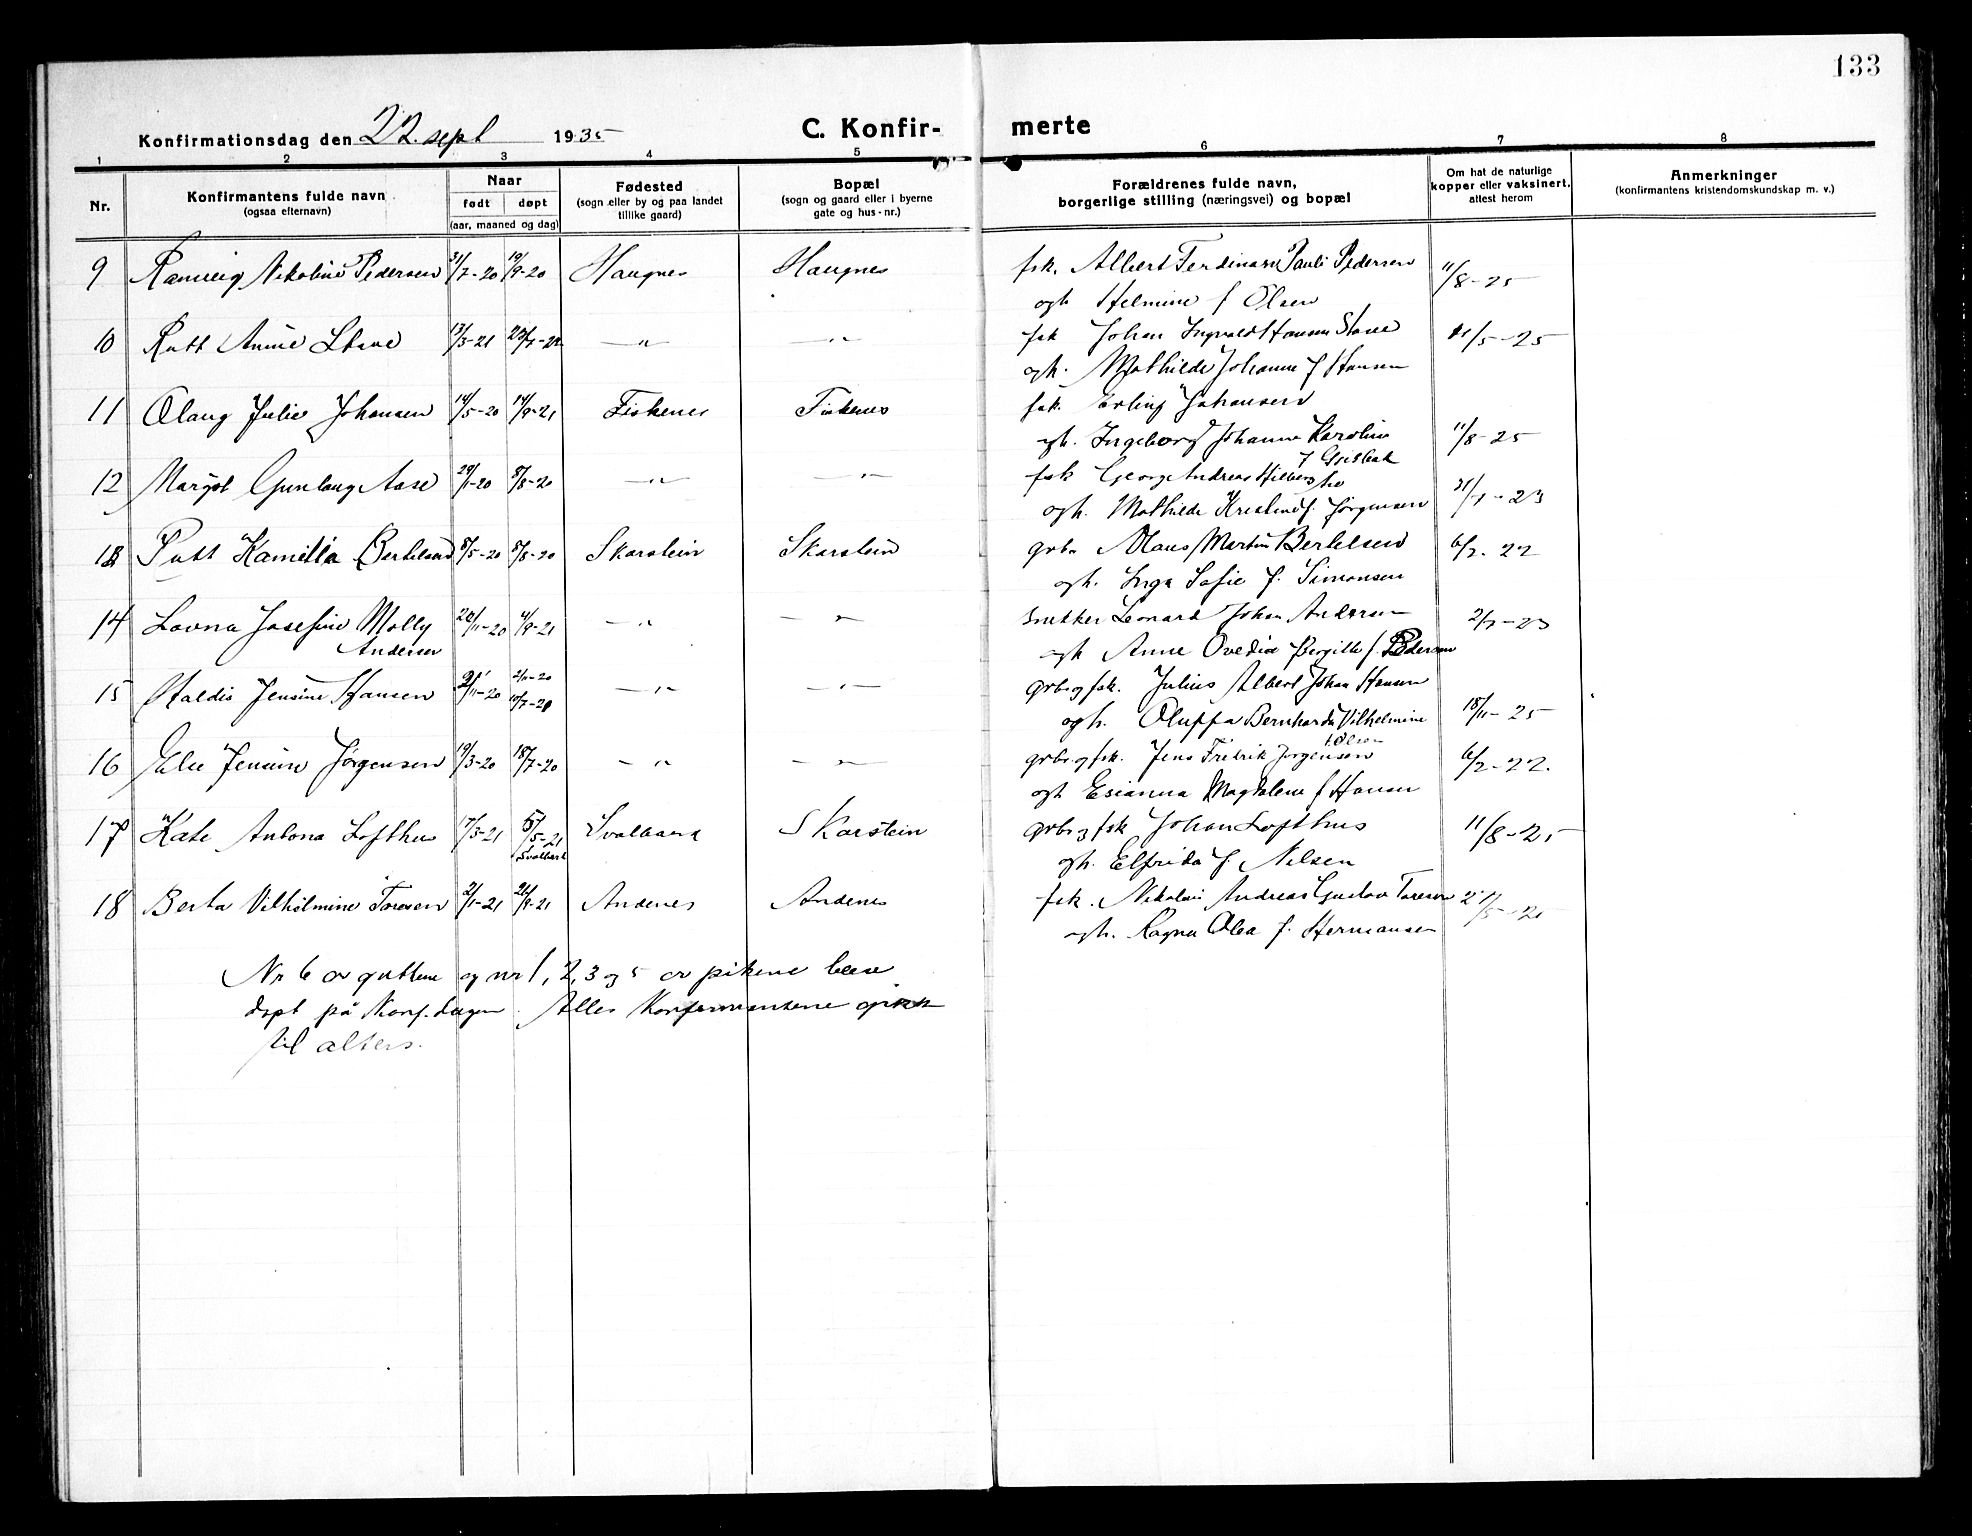 133
Konfirmationsdag den 22. sept 1935 C. Konfir- merte
1 2 3 4 5 6 7 8
Nr. Konfirmantens fulde navn (ogsaa efternavn) Naar født døpt (aar, maaned og dag) Fødested (sogn eller by og paa landet tillike gaard) Bopæl (sogn og gaard eller i byerne gate og hus-nr.) Forældrenes fulde navn, borgerlige stilling (næringsvei) og bopæl Om hat de naturlige kopper eller vaksinert, attest herom Anmerkninger (konfirmantens kristendomskundskap m. v.)
9 Ranveig Nikoline Pedersen 31/7-20 19/9-20 Haugnes Haugnes fsk. Albert Ferdinan Pauli Pedersen 11/8-25
og h. Helmine f Olsen
10 Rutt Annie Stave 13/3-21 —"— —"— fsk Johan Ingvald Hansen Stave /5-25
og h. Mathilde Johanne f Hansen
11 Olaug Julie Johansen 14/5-20 14/9-21 Fiskenes Fiskenes fsk. Erling Johansen
og h. Ingeborg Johanna Karoline 11/8-25
12 Margot Gunlaug Aase 29/1-20 8/8-20 —"— —"— fsk Georg Andreas
og h. Mathilde Kristine f. Jørgensen 31/1-23
13 Rutt Kamilla Bertelsen 8/5-20 8/8-20 Skarstein Skarstein grbr Klaus Martin Bertelsen 6/2-22
og h. Inga Sofie f. Simonsen
14 Lovna Josefine Molly Andersen 20/11-20 4/9-21 —"— —"— Snekker Leonard Johan Andersen 2/7-23
og h Anne Ovedia Bergitte f. Pedersen
15 Haldis Jensine Hansen 2/11-20 —"— —"— grbr og fsk. Julius Albert Johan Hansen
og h. Oluffa Bernharda Vilhelmine f. Olsen 18/11-25
16 Else Jensine Jørgensen 19/3-20 18/7-20 —"— —"— grbr og fsk. Jens Fredrik Jørgensen 6/2-22.
og h Esianna Magdalene f Hansen
17 Kate Antona Lofthus 17/3-21 5/5-21 Svalbard Svalbard Skarstein grbr og fsk Johan Lofthus 11/8-25
og h. Elfrida f. Nilsen
18 Berta Vilhelmine Toresen 2/1-21 26/9-21 Andenes Andenes fsk. Nikolai Andreas Gustav Toresen
og h. Ragna Olea f. Hermansen
Nr 6 av guttene og nr 1, 2, 3 og 5 av pikene bleve
døpt på Konf.dagen. Alle Konfirmantene gikk
til alters.